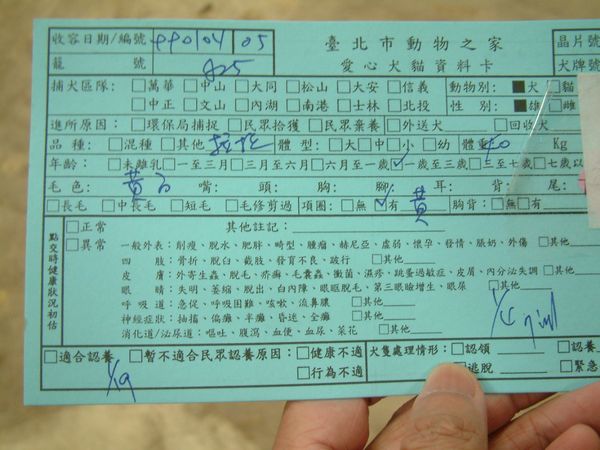 收容日期/編號 990104 05 臺北市動物之家 晶片號
籠號 825 愛心犬貓資料卡 犬牌號
捕犬區隊: □萬華 □中山 □大同 □松山 □大安 □信義 動物別: ■犬 □貓
□中正 □文山 □內湖 □南港 □士林 □北投 性別: ■雄 □雌
進所原因: □環保局捕捉 □民眾拾獲 □民眾棄養 □外送犬 □回收犬
品種: □混種 □其他 體型: □大 □中 □小 □幼 體重: Kg
年齡: □未離乳 □一至三月 □三至六月 □六至一歲 ☑一歲至三歲 □三至七歲 □七歲以
毛色: 黃白 嘴: 頭: 胸: 腳: 耳: 背: 尾:
□長毛 □中長毛 □短毛 □毛修剪過 項圈: □無 ☑有 黃 胸背: □無 □有
點交時健康狀況初估
□正常 其他註記:
□異常 一般外表: 削瘦、脫水、肥胖、畸型、腫瘤、赫尼亞、虛弱、懷孕、發情、脹奶、外傷 □其他
四肢: 骨折、脫臼、截肢、發育不良、跛行 □其他
皮膚: 外寄生蟲、脫毛、疥癬、毛囊蟲、黴菌、濕疹、跳蚤過敏症、皮屑、內分泌失調 □其他
眼睛: 失明、萎縮、脫出、白內障、眼眶脫毛、第三眼瞼增生、眼屎 □其他
呼吸道: 急促、呼吸困難、咳嗽、流鼻膿 □其他
神經症狀: 抽搐、偏癱、半癱、昏迷、全癱 □其他
消化道/泌尿道: 嘔吐、腹瀉、血便、血尿、菜花 □其他
□適合認養 □暫不適合民眾認養原因: □健康不適 犬隻處理情形: □認領 □認養
1/19 □行為不適 □逃脫 □緊急